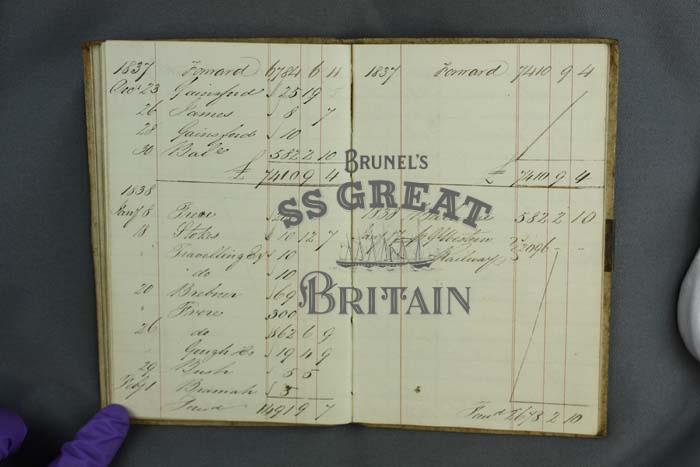 1837 Forward 6784 6 11
Decr 23 Gainsford 25 19
26 James 8 7
28 Gainsford 10
30 Balce 582 2 10
£ 7410 9 4
1838
Jany 8 Frere
18 Stokes 10 12 7
Travelling 10
do 10
20 Brebner 69
Frere 300
26 do 862 6 9
Gough 19 4 9
29 Bush 5 5
Feby 1 Bramah 5
Forwd 1491 9 7
1837 Forward 7410 9 4
£ 7410 9 4
1838 582 2 10
Jany 17 Gt Western 2096 - -
Railway
Forwd 2678 2 10
BRUNEL'S
SS GREAT
BRITAIN